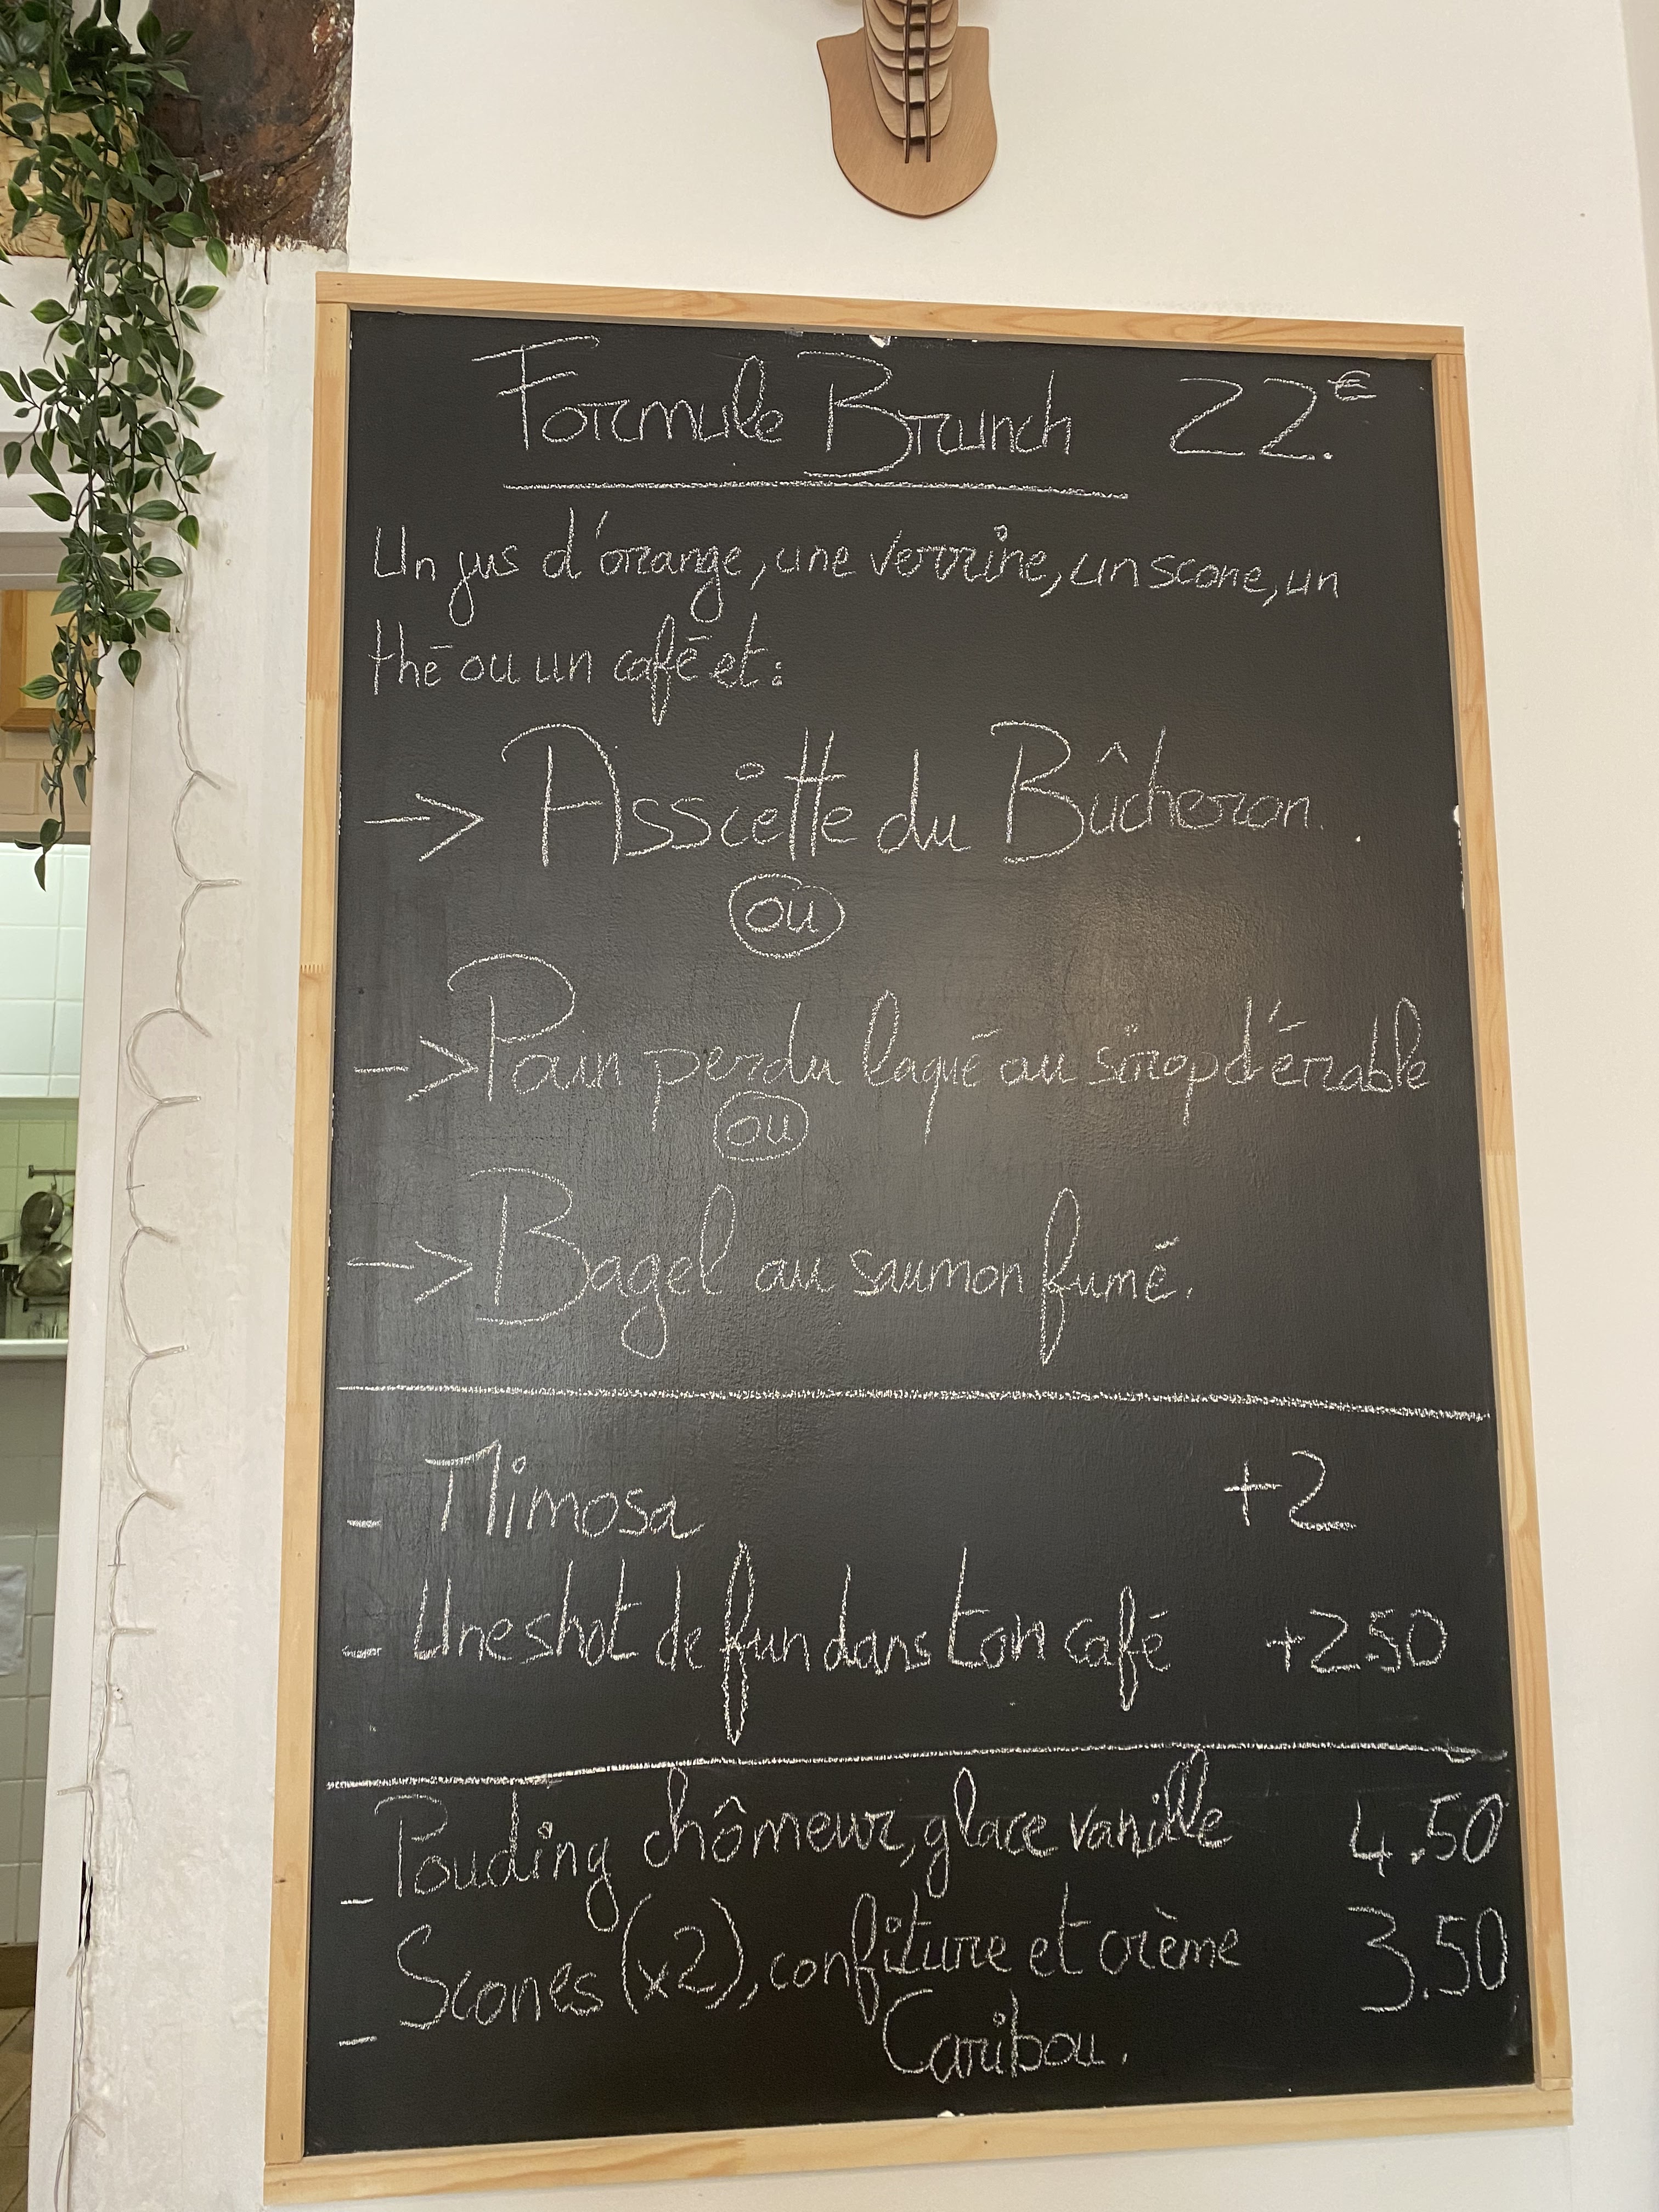 Formule Brunch 22.€
Un jus d'orange, une verrine, un scone, un
thé ou un café et:
-> Assiette du Bûcheron.
ou
-> Pain perdu laqué au sirop d'érable
ou
-> Bagel au saumon fumé.
- Mimosa +2
- Une shot de fun dans ton café +2.50
- Pouding chômeur, glace vanille 4.50
- Scones (x2), confiture et crème 3.50
Caribou.